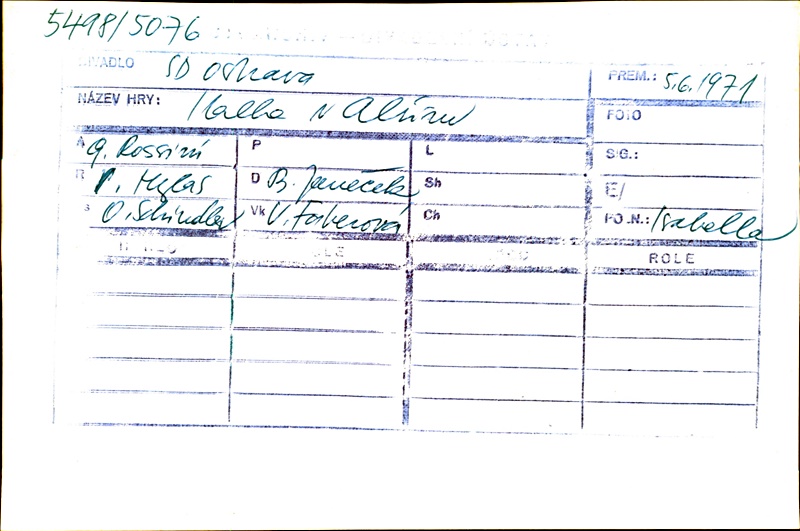 5498/5076
DIVADLO SD Ostrava PREM.: 5.6.1971
NÁZEV HRY: Italka v Alžíru FOTO
A G. Rossini P L SIG.:
R P. Hyláš? D B. Janeček Sh E/
S O. Schindler Vk V. Fáberová Ch PO.N.: Isabella
ROLE